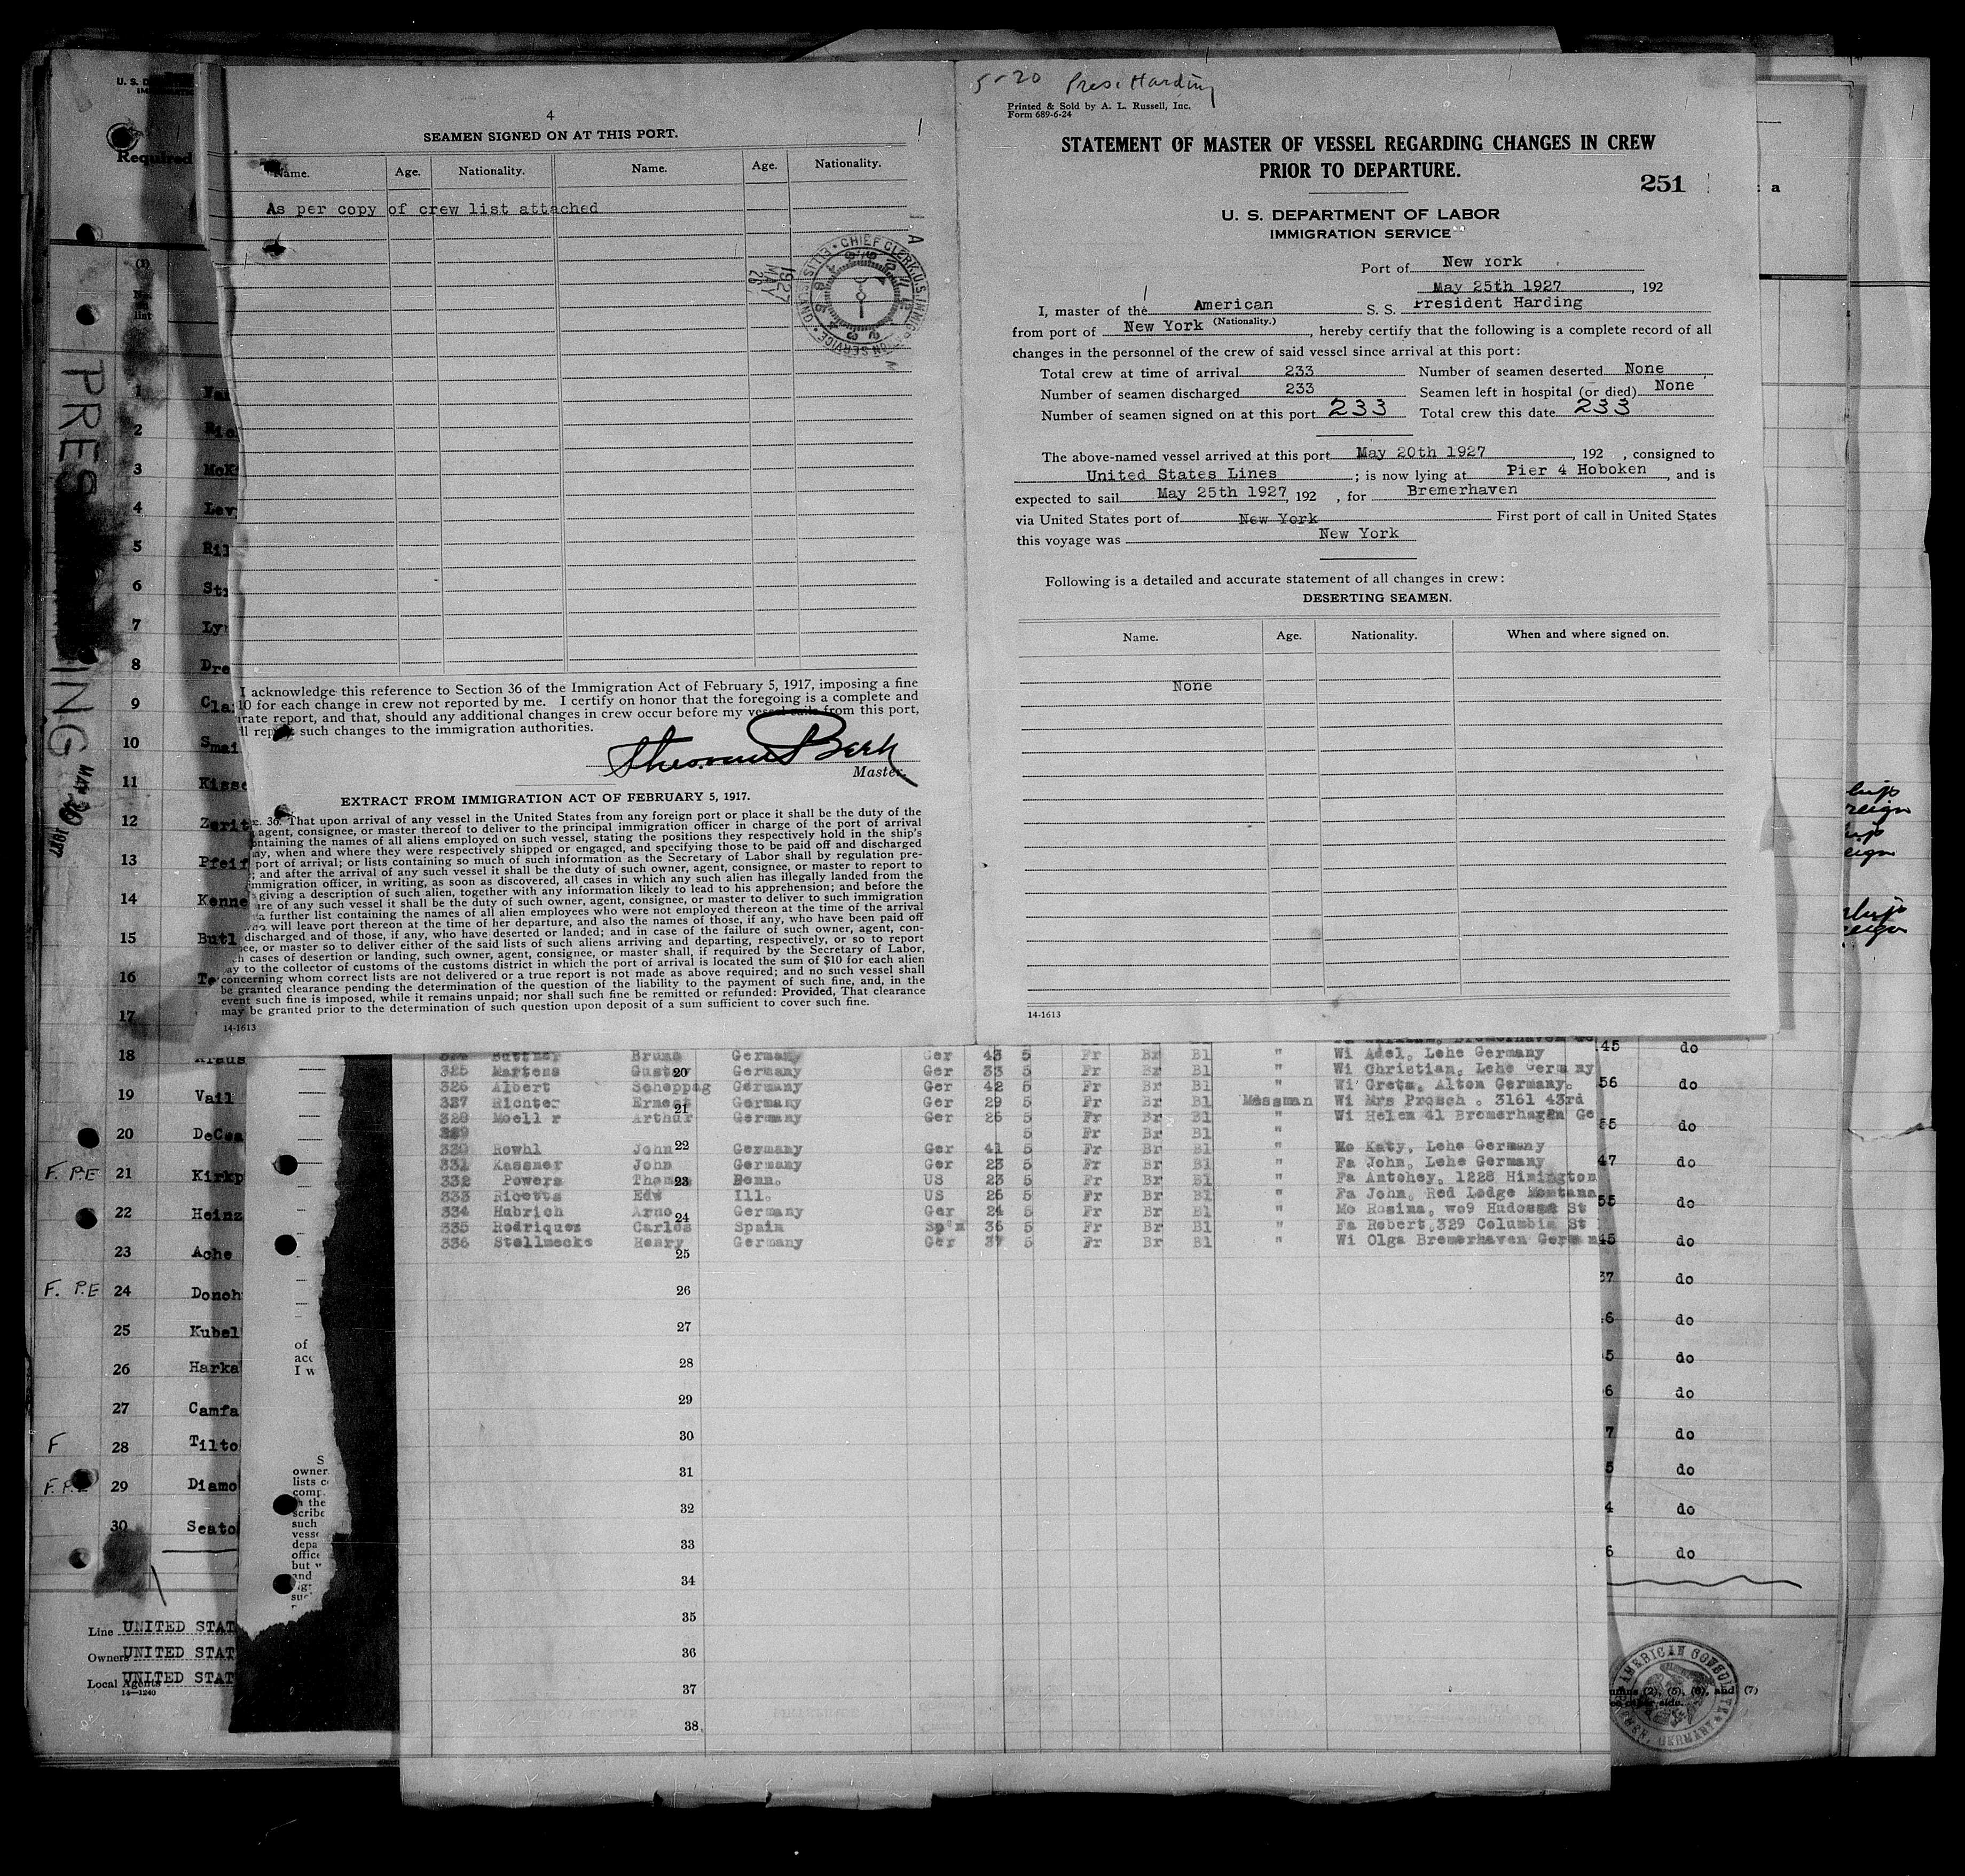 4
SEAMEN SIGNED ON AT THIS PORT.
Name. Age. Nationality. Name. Age. Nationality.
As per copy of crew list attached
CHIEF CLERK U.S. IMMIGRATION SERVICE ELLIS ISLAND
1927 MAY 26
I acknowledge this reference to Section 36 of the Immigration Act of February 5, 1917, imposing a fine
10 for each change in crew not reported by me. I certify on honor that the foregoing is a complete and
rate report, and that, should any additional changes in crew occur before my vessel sails from this port,
ll report such changes to the immigration authorities.
Master.
EXTRACT FROM IMMIGRATION ACT OF FEBRUARY 5, 1917.
c. 36. That upon arrival of any vessel in the United States from any foreign port or place it shall be the duty of the
agent, consignee, or master thereof to deliver to the principal immigration officer in charge of the port of arrival
ontaining the names of all aliens employed on such vessel, stating the positions they respectively hold in the ship's
ny, when and where they were respectively shipped or engaged, and specifying those to be paid off and discharged
port of arrival; or lists containing so much of such information as the Secretary of Labor shall by regulation pre-
; and after the arrival of any such vessel it shall be the duty of such owner, agent, consignee, or master to report to
mmigration officer, in writing, as soon as discovered, all cases in which any such alien has illegally landed from the
giving a description of such alien, together with any information likely to lead to his apprehension; and before the
ure of any such vessel it shall be the duty of such owner, agent, consignee, or master to deliver to such immigration
a further list containing the names of all alien employees who were not employed thereon at the time of the arrival
who will leave port thereon at the time of her departure, and also the names of those, if any, who have been paid off
discharged and of those, if any, who have deserted or landed; and in case of the failure of such owner, agent, con-
ee, or master so to deliver either of the said lists of such aliens arriving and departing, respectively, or so to report
h cases of desertion or landing, such owner, agent, consignee, or master shall, if required by the Secretary of Labor,
ay to the collector of customs of the customs district in which the port of arrival is located the sum of $10 for each alien
concerning whom correct lists are not delivered or a true report is not made as above required; and no such vessel shall
be granted clearance pending the determination of the question of the liability to the payment of such fine, and, in the
event such fine is imposed, while it remains unpaid; nor shall such fine be remitted or refunded: Provided, That clearance
may be granted prior to the determination of such question upon deposit of a sum sufficient to cover such fine.
14-1613
5-20 Pres. Harding
Printed & Sold by A. L. Russell, Inc.
Form 689-6-24
STATEMENT OF MASTER OF VESSEL REGARDING CHANGES IN CREW
PRIOR TO DEPARTURE.
251
U. S. DEPARTMENT OF LABOR
IMMIGRATION SERVICE
Port of New York
May 25th 1927, 192
I, master of the American S. S. President Harding
(Nationality.)
from port of New York, hereby certify that the following is a complete record of all
changes in the personnel of the crew of said vessel since arrival at this port:
Total crew at time of arrival 233 Number of seamen deserted None
Number of seamen discharged 233 Seamen left in hospital (or died) None
Number of seamen signed on at this port 233 Total crew this date 233
The above-named vessel arrived at this port May 20th 1927, 192 , consigned to
United States Lines; is now lying at Pier 4 Hoboken, and is
expected to sail May 25th 1927, 192 , for Bremerhaven
via United States port of New York First port of call in United States
this voyage was New York
Following is a detailed and accurate statement of all changes in crew:
DESERTING SEAMEN.
Name. Age. Nationality. When and where signed on.
None
14-1613
Bruno Germany Ger 43 5 Fr Br Bl " Wi Adel, Lehe Germany
325 Martens Gustav Germany Ger 33 5 Fr Br Bl " Wi Christian, Lehe Germany
326 Albert Scheppag Germany Ger 42 5 Fr Br Bl " Wi Greta, Alton Germany.
327 Richter Ernest Germany Ger 29 5 Fr Br Bl Messman Wi Mrs Prosch . 3161 43rd
328 Moell r Arthur Germany Ger 26 5 Fr Br Bl " Wi Helen 41 Bremerhagen Ge
329 5 Fr Br Bl "
330 Rowhl John Germany Ger 41 5 Fr Br Bl " Mo Katy, Lehe Germany
331 Kassner John Germany Ger 23 5 Fr Br Bl " Fa John, Lehe Germany
332 Powers Thomas Penn. US 23 5 Fr Br Bl " Fa Antohey, 1228 Himington
333 Ricetts Edw Ill. US 26 5 Fr Br Bl " Fa John, Red Lodge Montana
334 Hubrich Arno Germany Ger 24 5 Fr Br Bl " Mo Rosina, wo9 Hudosen St
335 Rodriques Carlos Spain Sp'n 36 5 Fr Br Bl " Fa Robert,329 Columbia St
336 Stellmecke Henry Germany Ger 37 5 Fr Br Bl " Wi Olga Bremerhaven German
20
21
22
23
24
25
26
27
28
29
30
31
32
33
34
35
36
37
38
U. S. D
Required
PRES
ING
MAY 20 1927
1
2 Ric
3 McK
4 Lev
5 Ril
6 Str
7 Ly
8 Dre
9 Cla
10 Smai
11 Kisse
12 Zerit
13 Pfeif
14 Kenne
15 Butl
16
17
18 Kraus
19 Vail
20 DeCea
F. P.E 21 Kirkp
22 Heinz
23 Ache
F. P.E 24 Donoh
25 Kubel
26 Harka
27 Camfa
F 28 Tilto
F. P.E 29 Diamo
30 Seato
Line UNITED STAT
Owners UNITED STAT
Local Agents UNITED STAT
14-1240
of
acc
I w
S
owner
lists c
comp
n the
scribe
such
vesse
depa
office
but
and
45 do
56 do
55 do
47 do
55 do
45 do
37 do
6 do
5 do
6 do
7 do
5 do
4 do
6 do
umns (2), (5), (6), and (7)
on other side.
AMERICAN CONSUL
BREMEN, GERMANY
a
reign
eign